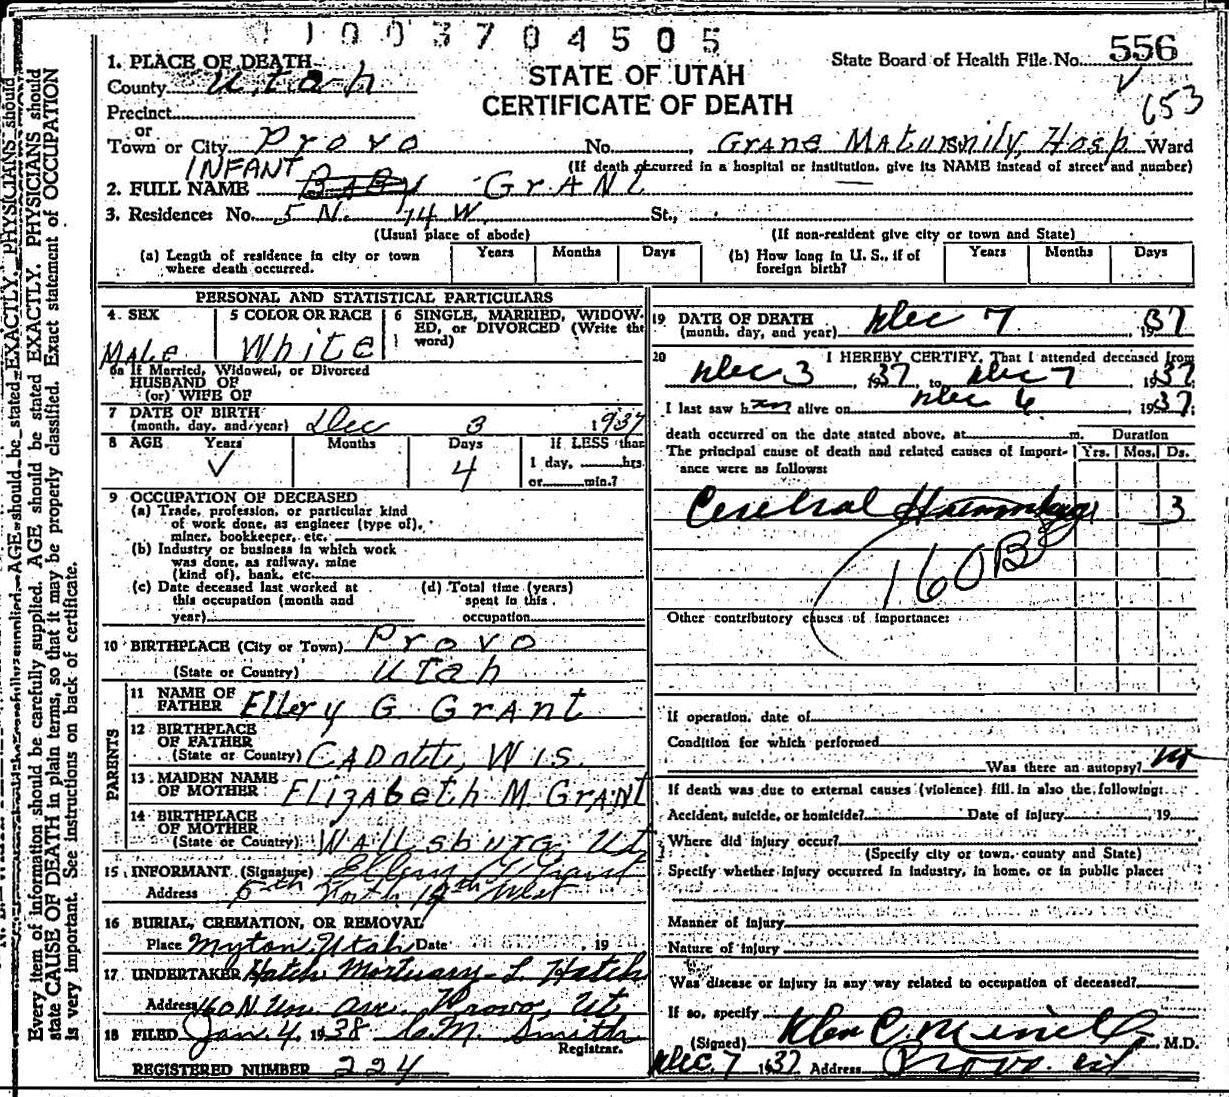 11003704505
State Board of Health File No. 556
653
STATE OF UTAH
CERTIFICATE OF DEATH
1. PLACE OF DEATH
County Utah
Precinct
or
Town or City Provo No. Grane Maturnity Hosp Ward
(If death occurred in a hospital or institution, give its NAME instead of street and number)
INFANT
2. FULL NAME Baby Grant
3. Residence: No. 5 N. 14 W. St.,
(Usual place of abode) (If non-resident give city or town and State)
(a) Length of residence in city or town where death occurred. Years Months Days
(b) How long in U. S., if of foreign birth? Years Months Days
PERSONAL AND STATISTICAL PARTICULARS
4. SEX Male
5 COLOR OR RACE White
6 SINGLE, MARRIED, WIDOWED, or DIVORCED (Write the word)
6a If Married, Widowed, or Divorced
HUSBAND OF
(or) WIFE OF
7 DATE OF BIRTH
(month, day, and year) Dec 3 1937
8 AGE Years Months Days If LESS than
✓ 4 1 day, hrs.
or min.?
9 OCCUPATION OF DECEASED
(a) Trade, profession, or particular kind
of work done, as engineer (type of),
miner, bookkeeper, etc.
(b) Industry or business in which work
was done, as railway, mine
(kind of), bank, etc.
(c) Date deceased last worked at
this occupation (month and
year)
(d) Total time (years)
spent in this
occupation
10 BIRTHPLACE (City or Town) Provo
(State or Country) Utah
PARENTS
11 NAME OF
FATHER Ellery G Grant
12 BIRTHPLACE
OF FATHER
(State or Country) Cadott, Wis.
13 MAIDEN NAME
OF MOTHER Elizabeth M Grant
14 BIRTHPLACE
OF MOTHER
(State or Country) Wallsburg, Ut
15 INFORMANT (Signature) Ellery G Grant
Address 5th North 14th West
16 BURIAL, CREMATION, OR REMOVAL
Place Myton, Utah Date , 19
17 UNDERTAKER Hatch Mortuary - L. Hatch
Address 160 N Un. Ave. Provo, Ut.
18 FILED Jan. 4, 1938 C.M. Smith
Registrar.
REGISTERED NUMBER 224
19 DATE OF DEATH
(month, day, and year) Dec 7 1937
20 I HEREBY CERTIFY, That I attended deceased from
Dec 3, 1937, to Dec 7 1937
I last saw h im alive on Dec 6, 1937;
death occurred on the date stated above, at m. Duration
The principal cause of death and related causes of importance were as follows: Yrs. Mos. Ds.
Cerebral Haemorrhage 3
160B
Other contributory causes of importance:
If operation, date of
Condition for which performed
Was there an autopsy?
If death was due to external causes (violence) fill in also the following:
Accident, suicide, or homicide? Date of injury , 19
Where did injury occur?
(Specify city or town, county and State)
Specify whether injury occurred in industry, in home, or in public place:
Manner of injury
Nature of injury
Was disease or injury in any way related to occupation of deceased?
If so, specify
(Signed) , M.D.
Dec. 7 1937 Address Provo, Ut
Every item of information should be carefully supplied. AGE should be stated EXACTLY. PHYSICIANS should
state CAUSE OF DEATH in plain terms, so that it may be properly classified. Exact statement of OCCUPATION
is very important. See instructions on back of certificate.